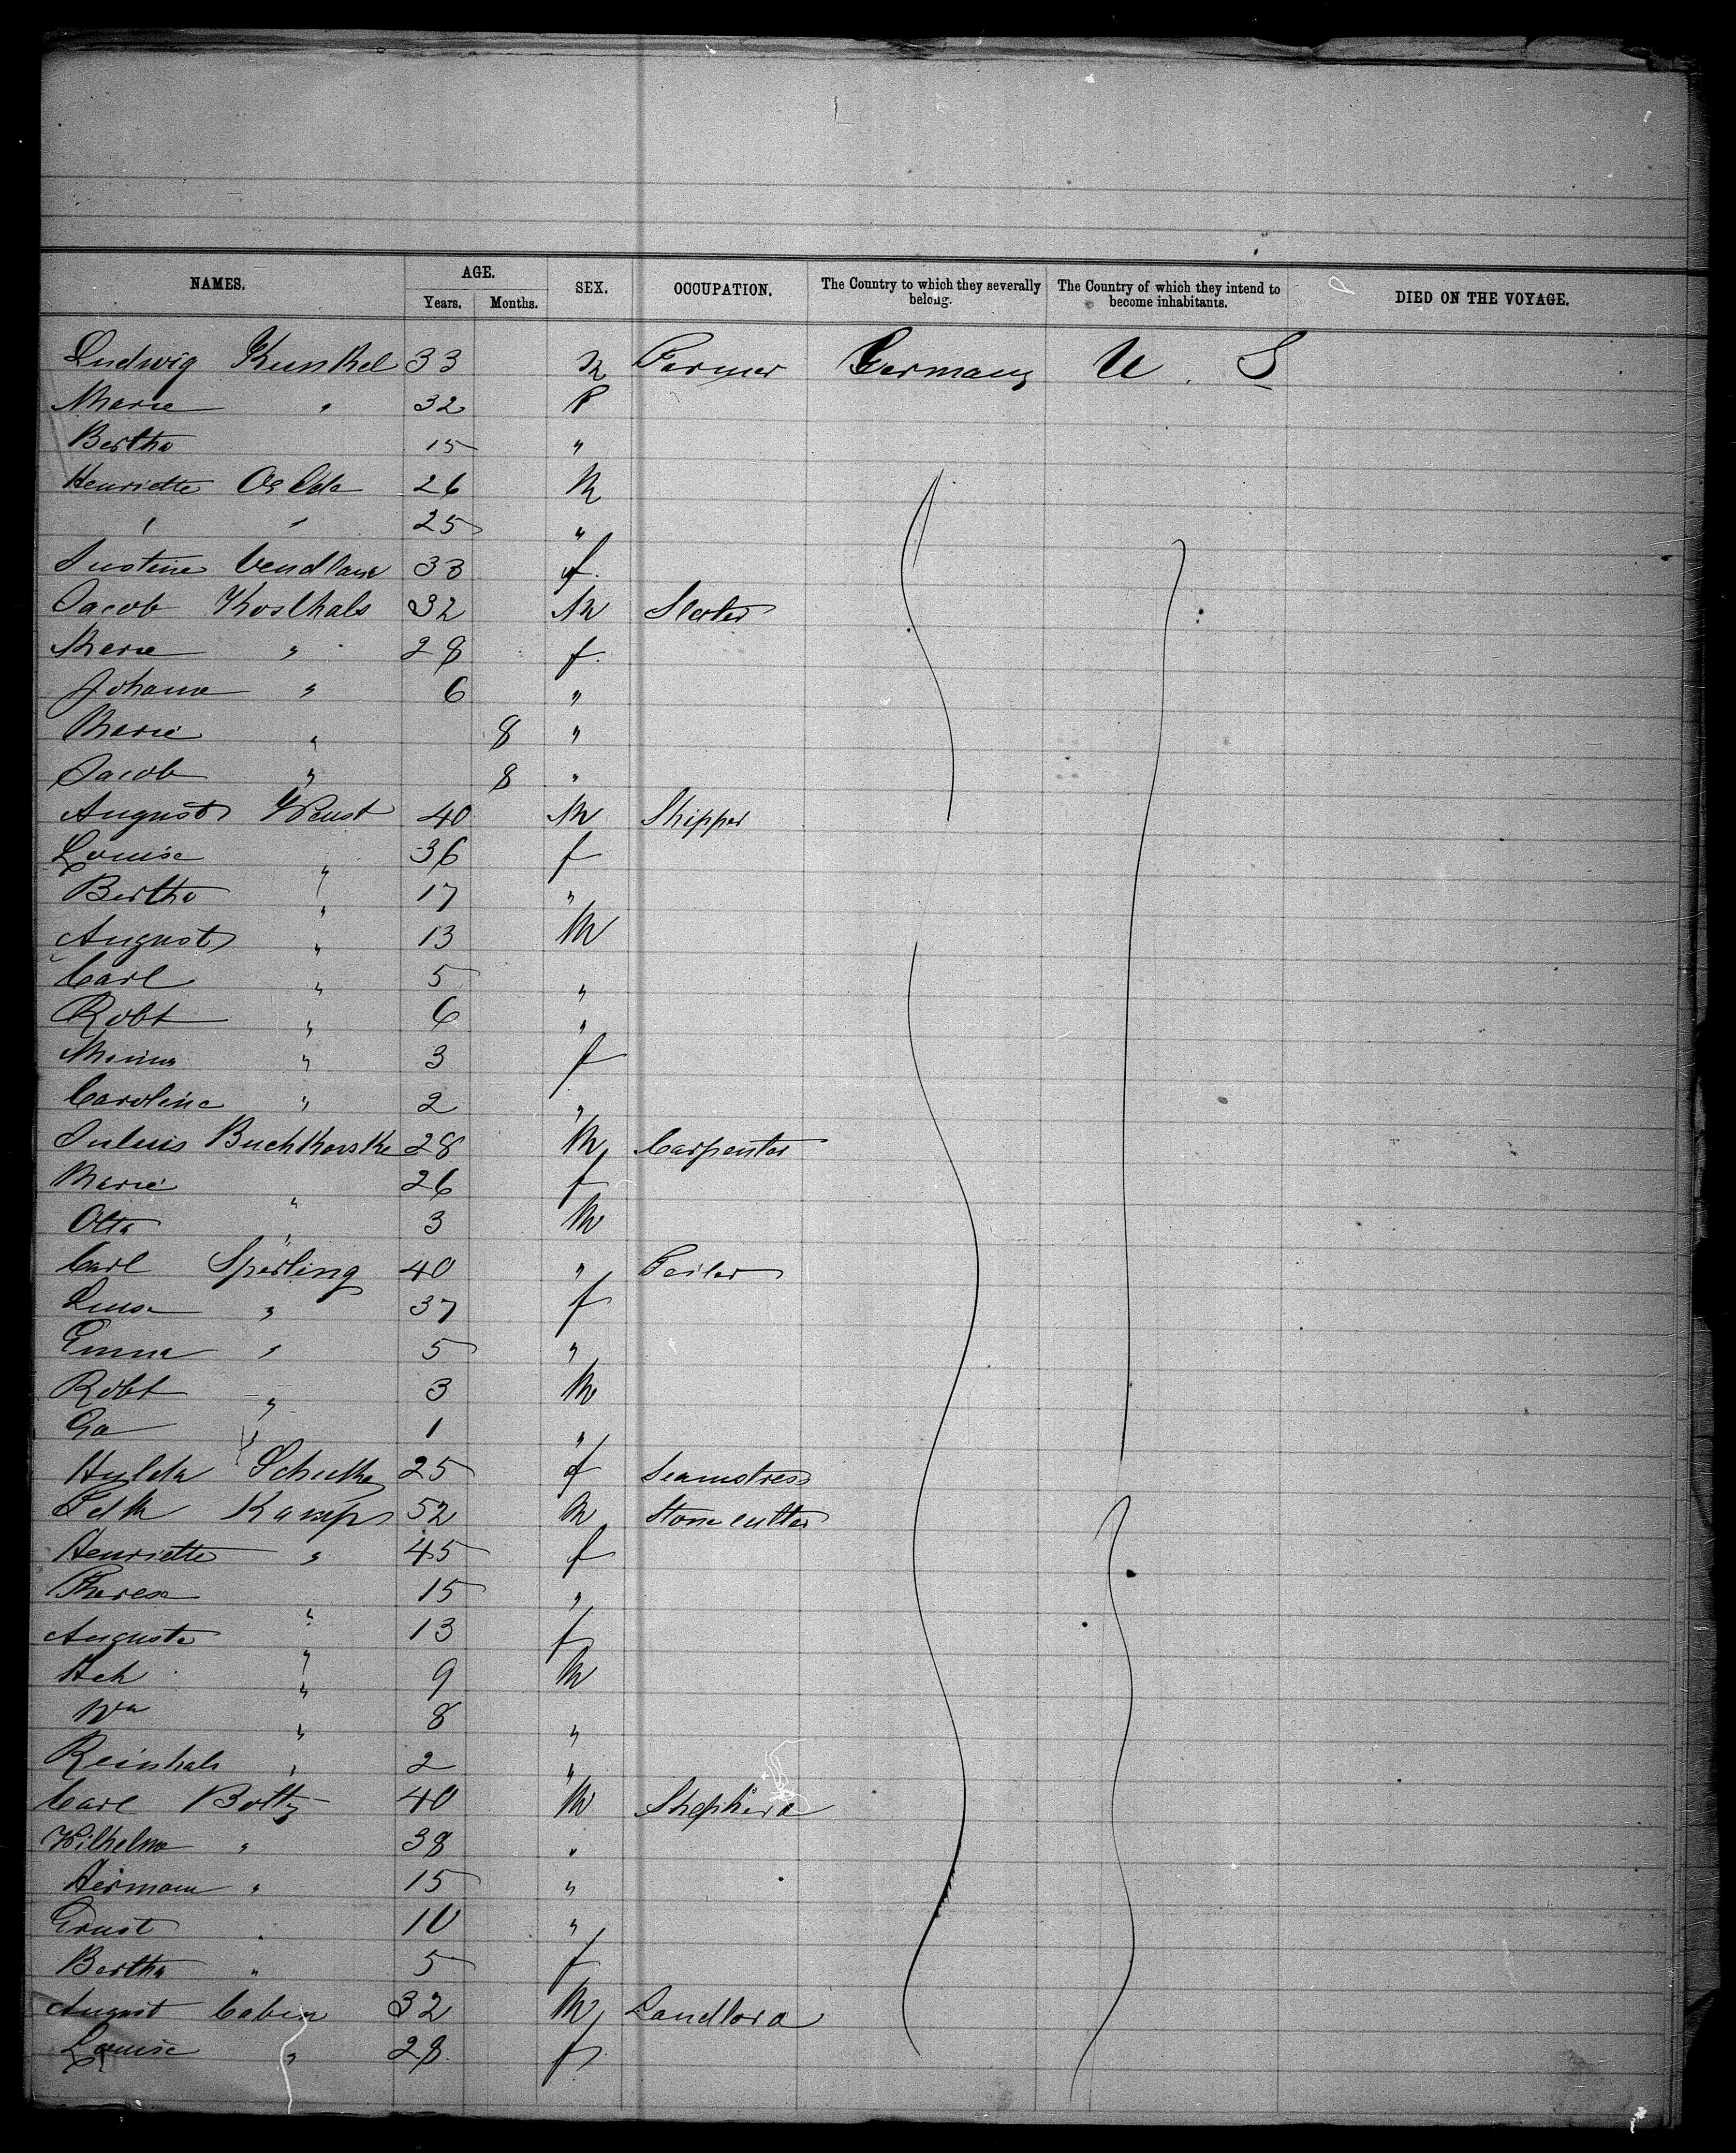 NAMES. AGE. SEX. OCCUPATION. The Country to which they severally belong. The Country of which they intend to become inhabitants. DIED ON THE VOYAGE.
Years. Months.
Ludwig Kunkel 33 M Farmer Germany U. S
Marie " 32 f
Bertha 15 "
Henriette 26 M
" " 25 "
Justine 33 f.
Jacob 32 M Slater
Marie " 28 f.
Johana " 6 "
Marie " 8 "
Jacob " 8 "
August 40 M Skipper
Louise " 36 f
Bertha " 17 "
August " 13 M
Carl " 5 "
Robt " 6 "
Minna " 3 f
Caroline " 2 "
Julius 28 M Carpenter
Marie " 26 f
Otto " 3 M
Carl Sperling 40 " Tailor
" 37 f
Emma " 5 "
Robt " 3 M
" 1 "
Hylda 25 f Seamstress
Kamp 52 M Stone cutter
Henriette " 45 f
Theresa " 15 "
Auguste " 13 f
" 9 M
Wm " 8 "
" 2 "
Carl 40 M Shepherd
Wilhelma " 38 "
Hermann " 15 "
Ernst " 10 "
Bertha " 5 f
August 32 M Landlord
Louise " 28 f